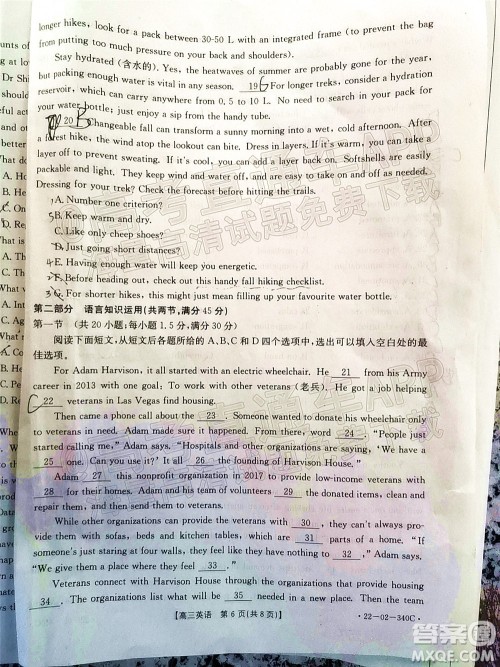 longer hikes, look for a pack between 30-50 L with an integrated frame (to prevent the bag
from putting too much pressure on your back and shoulders).
Stay hydrated (含水的). Yes, the heatwaves of summer are probably gone for the year,
but packing enough water is vital in any season. 19 G For longer treks, consider a hydration
reservoir, which can carry anywhere from 0.5 to 10 L. No need to search in your pack for
your water bottle; just enjoy a sip from the handy tube.
20 B Changeable fall can transform a sunny morning into a wet, cold afternoon. After
a forest hike, the wind atop the lookout can bite. Dress in layers. If it's warm, you can take a
layer off to prevent sweating. If it's cool, you can add a layer back on. Softshells are easily
packable and light. They can be taken on and off as needed.
Dressing for your trek? Check the forecast before hitting the trails.
A. Number one criterion?
B. Keep warm and dry.
C. Like only cheap shoes?
D. Just going short distances?
E. Having enough water will keep you energetic.
F. Before heading out, check this handy fall hiking checklist.
G. For shorter hikes, this might just mean filling up your favourite water bottle.
第二部分 语言知识运用(共两节,满分45分)
第一节 (共20小题;每小题1.5分,满分30分)
阅读下面短文,从短文后各题所给的A、B、C和D四个选项中,选出可以填入空白处的最
佳选项。
For Adam Harvison, it all started with an electric wheelchair. He 21 from his Army
career in 2013 with one goal: To work with other veterans (老兵). He got a job helping
C 22 veterans in Las Vegas find housing.
Then came a phone call about the 23 . Someone wanted to donate his wheelchair only
to veterans in need. Adam made sure it happened. From there, word 24 . "People just
started calling me," Adam says. "Hospitals and other organizations are saying, 'We have a
25 one. Can you use it?' It all 26 the founding of Harvison House."
Adam 27 this nonprofit organization in 2017 to provide low-income veterans with
28 for their homes. Adam and his team of volunteers 29 the donated items, clean and
repair them, and then send them to veterans.
While other organizations can provide the veterans with 30 , they can't always provide
them with sofas, beds and kitchen tables, which are 31 parts of a home. "If
someone's just staring at four walls, they feel like they have nothing to 32 ," Adam says,
"We give them a place where they feel 33 ."
Veterans connect with Harvison House through the organizations that provide housing
34 . The size of the unit can make 35 what's needed in a new place. Then the team
【高三英语 第6页(共8页)】
·22-02-340C·
答案圈
MXQE.COM